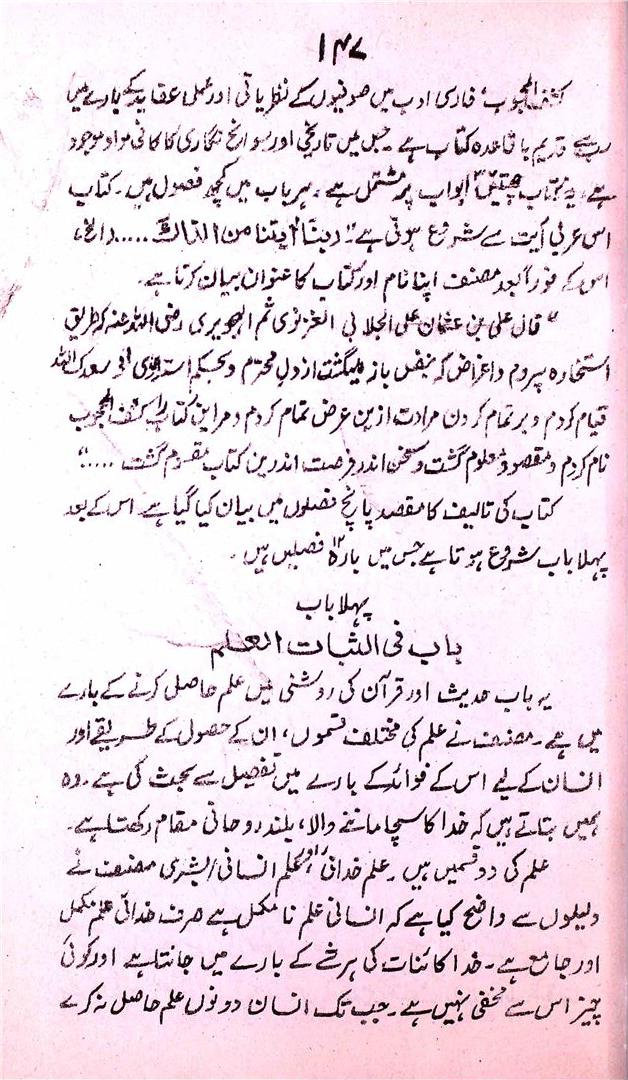 ۱۴۷
کشف المحجوب، فارسی ادب میں صوفیوں کے نظریاتی اور عملی عقاید کے بارے میں
سب سے قدیم باقاعدہ کتاب ہے۔ جس میں تاریخی اور سوانح نگاری کا کافی مواد موجود
ہے۔ یہ کتاب چھتیس ابواب پر مشتمل ہے۔ ہر باب میں کچھ فصول ہیں۔ کتاب
اس عربی آیت سے شروع ہوتی ہے۔ "ربنا اٰیتنا من اللذالک..... (الخ)
اس کے فوراً بعد مصنف اپنا نام اور کتاب کا عنوان بیان کرتا ہے۔
"قال علی بن عثمان علی الجلابی الغزنوی ثم الہجویری رضی اللہ عنہ کطریق
استخارہ سپردم واغراض کہ بنفس باز میگشت ازدل محترم و بحکم استدعای
قیام کردم و بر تمام کردن مرادت ازین عرض تمام کردم و مر این کتاب را کشف المحجوب
نام کردم و مقصود معلوم گشت و سخن اندر فرصت اندرین کتاب مقسوم گشت ....."
کتاب کی تالیف کا مقصد پانچ فصلوں میں بیان کیا گیا ہے۔ اس کے بعد
پہلا باب شروع ہوتا ہے جس میں بارہ ۱۲ فصلیں ہیں۔
پہلا باب
باب فی الثبات العلم
یہ باب حدیث اور قرآن کی روشنی میں علم حاصل کرنے کے بارے
میں ہے۔ مصنف نے علم کی مختلف قسموں، ان کے حصول کے طریقے اور
انسان کے لیے اس کے فوائد کے بارے میں تفصیل سے بحث کی ہے۔ وہ
ہمیں بتاتے ہیں کہ خدا کا سچا ماننے والا، بلند روحانی مقام رکھتا ہے۔
علم کی دو قسمیں ہیں۔ علم خدائی اور علم انسانی/بشری مصنف نے
دلیلوں سے واضح کیا ہے کہ انسانی علم نامکمل ہے صرف خدائی علم مکمل
اور جامع ہے۔ خدا کائنات کی ہر شے کے بارے میں جانتا ہے اور کوئی
چیز اس سے مخفی نہیں ہے۔ جب تک انسان دونوں علم حاصل نہ کرے